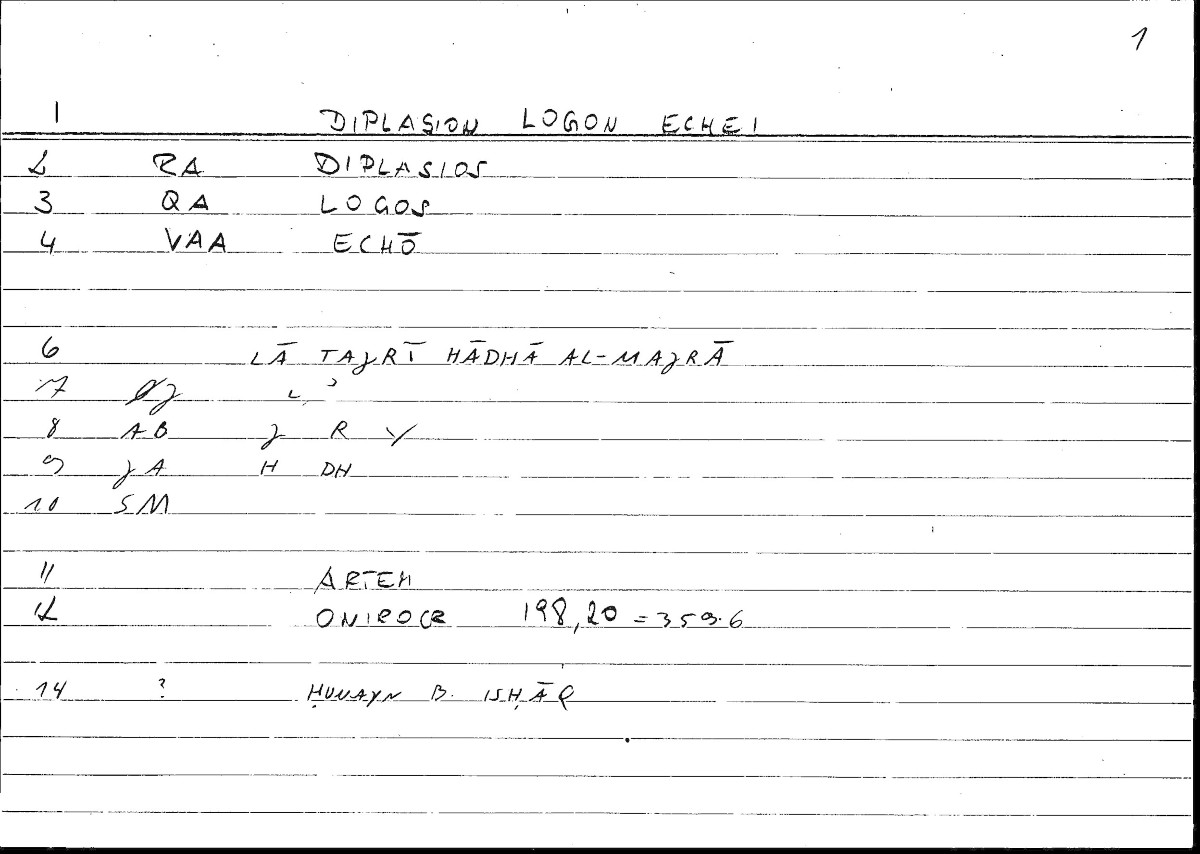 1
1 DIPLASION LOGON ECHEI
2 RA DIPLASIOS
3 QA LOGOS
4 VAA ECHŌ
6 LĀ TAJRĪ HĀDHĀ AL-MAJRĀ
7 J L ʾ
8 AB J R Y
9 JA H DH
10 SM
11 ARTEM
12 ONIROCR 198,20 = 359.6
14 ? ḤUNAYN B. ISḤĀQ